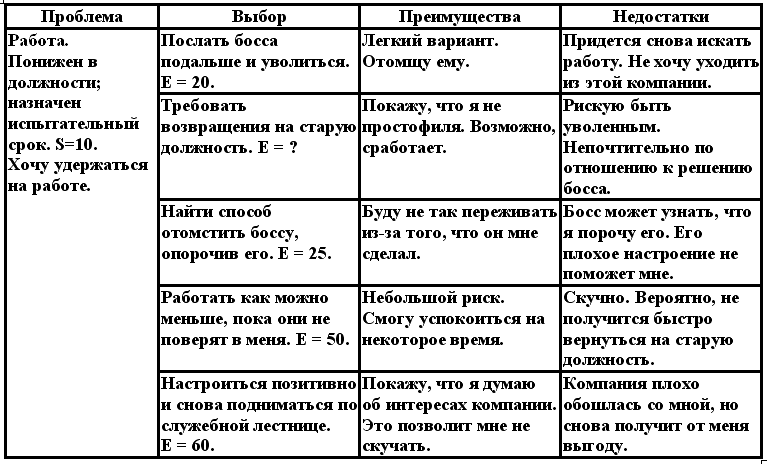 Проблема
Выбор
Преимущества
Недостатки
Работа.
Понижен в
должности;
назначен
испытательный
срок. S=10.
Хочу удержаться
на работе.
Послать босса
подальше и уволиться.
E = 20.
Легкий вариант.
Отомщу ему.
Придется снова искать
работу. Не хочу уходить
из этой компании.
Требовать
возвращения на старую
должность. E = ?
Покажу, что я не
простофиля. Возможно,
сработает.
Рискую быть
уволенным.
Непочтительно по
отношению к решению
босса.
Найти способ
отомстить боссу,
опорочив его. E = 25.
Буду не так переживать
из-за того, что он мне
сделал.
Босс может узнать, что
я порочу его. Его
плохое настроение не
поможет мне.
Работать как можно
меньше, пока они не
поверят в меня. E = 50.
Небольшой риск.
Смогу успокоиться на
некоторое время.
Скучно. Вероятно, не
получится быстро
вернуться на старую
должность.
Настроиться позитивно
и снова подниматься по
служебной лестнице.
E = 60.
Покажу, что я думаю
об интересах компании.
Это позволит мне не
скучать.
Компания плохо
обошлась со мной, но
снова получит от меня
выгоду.